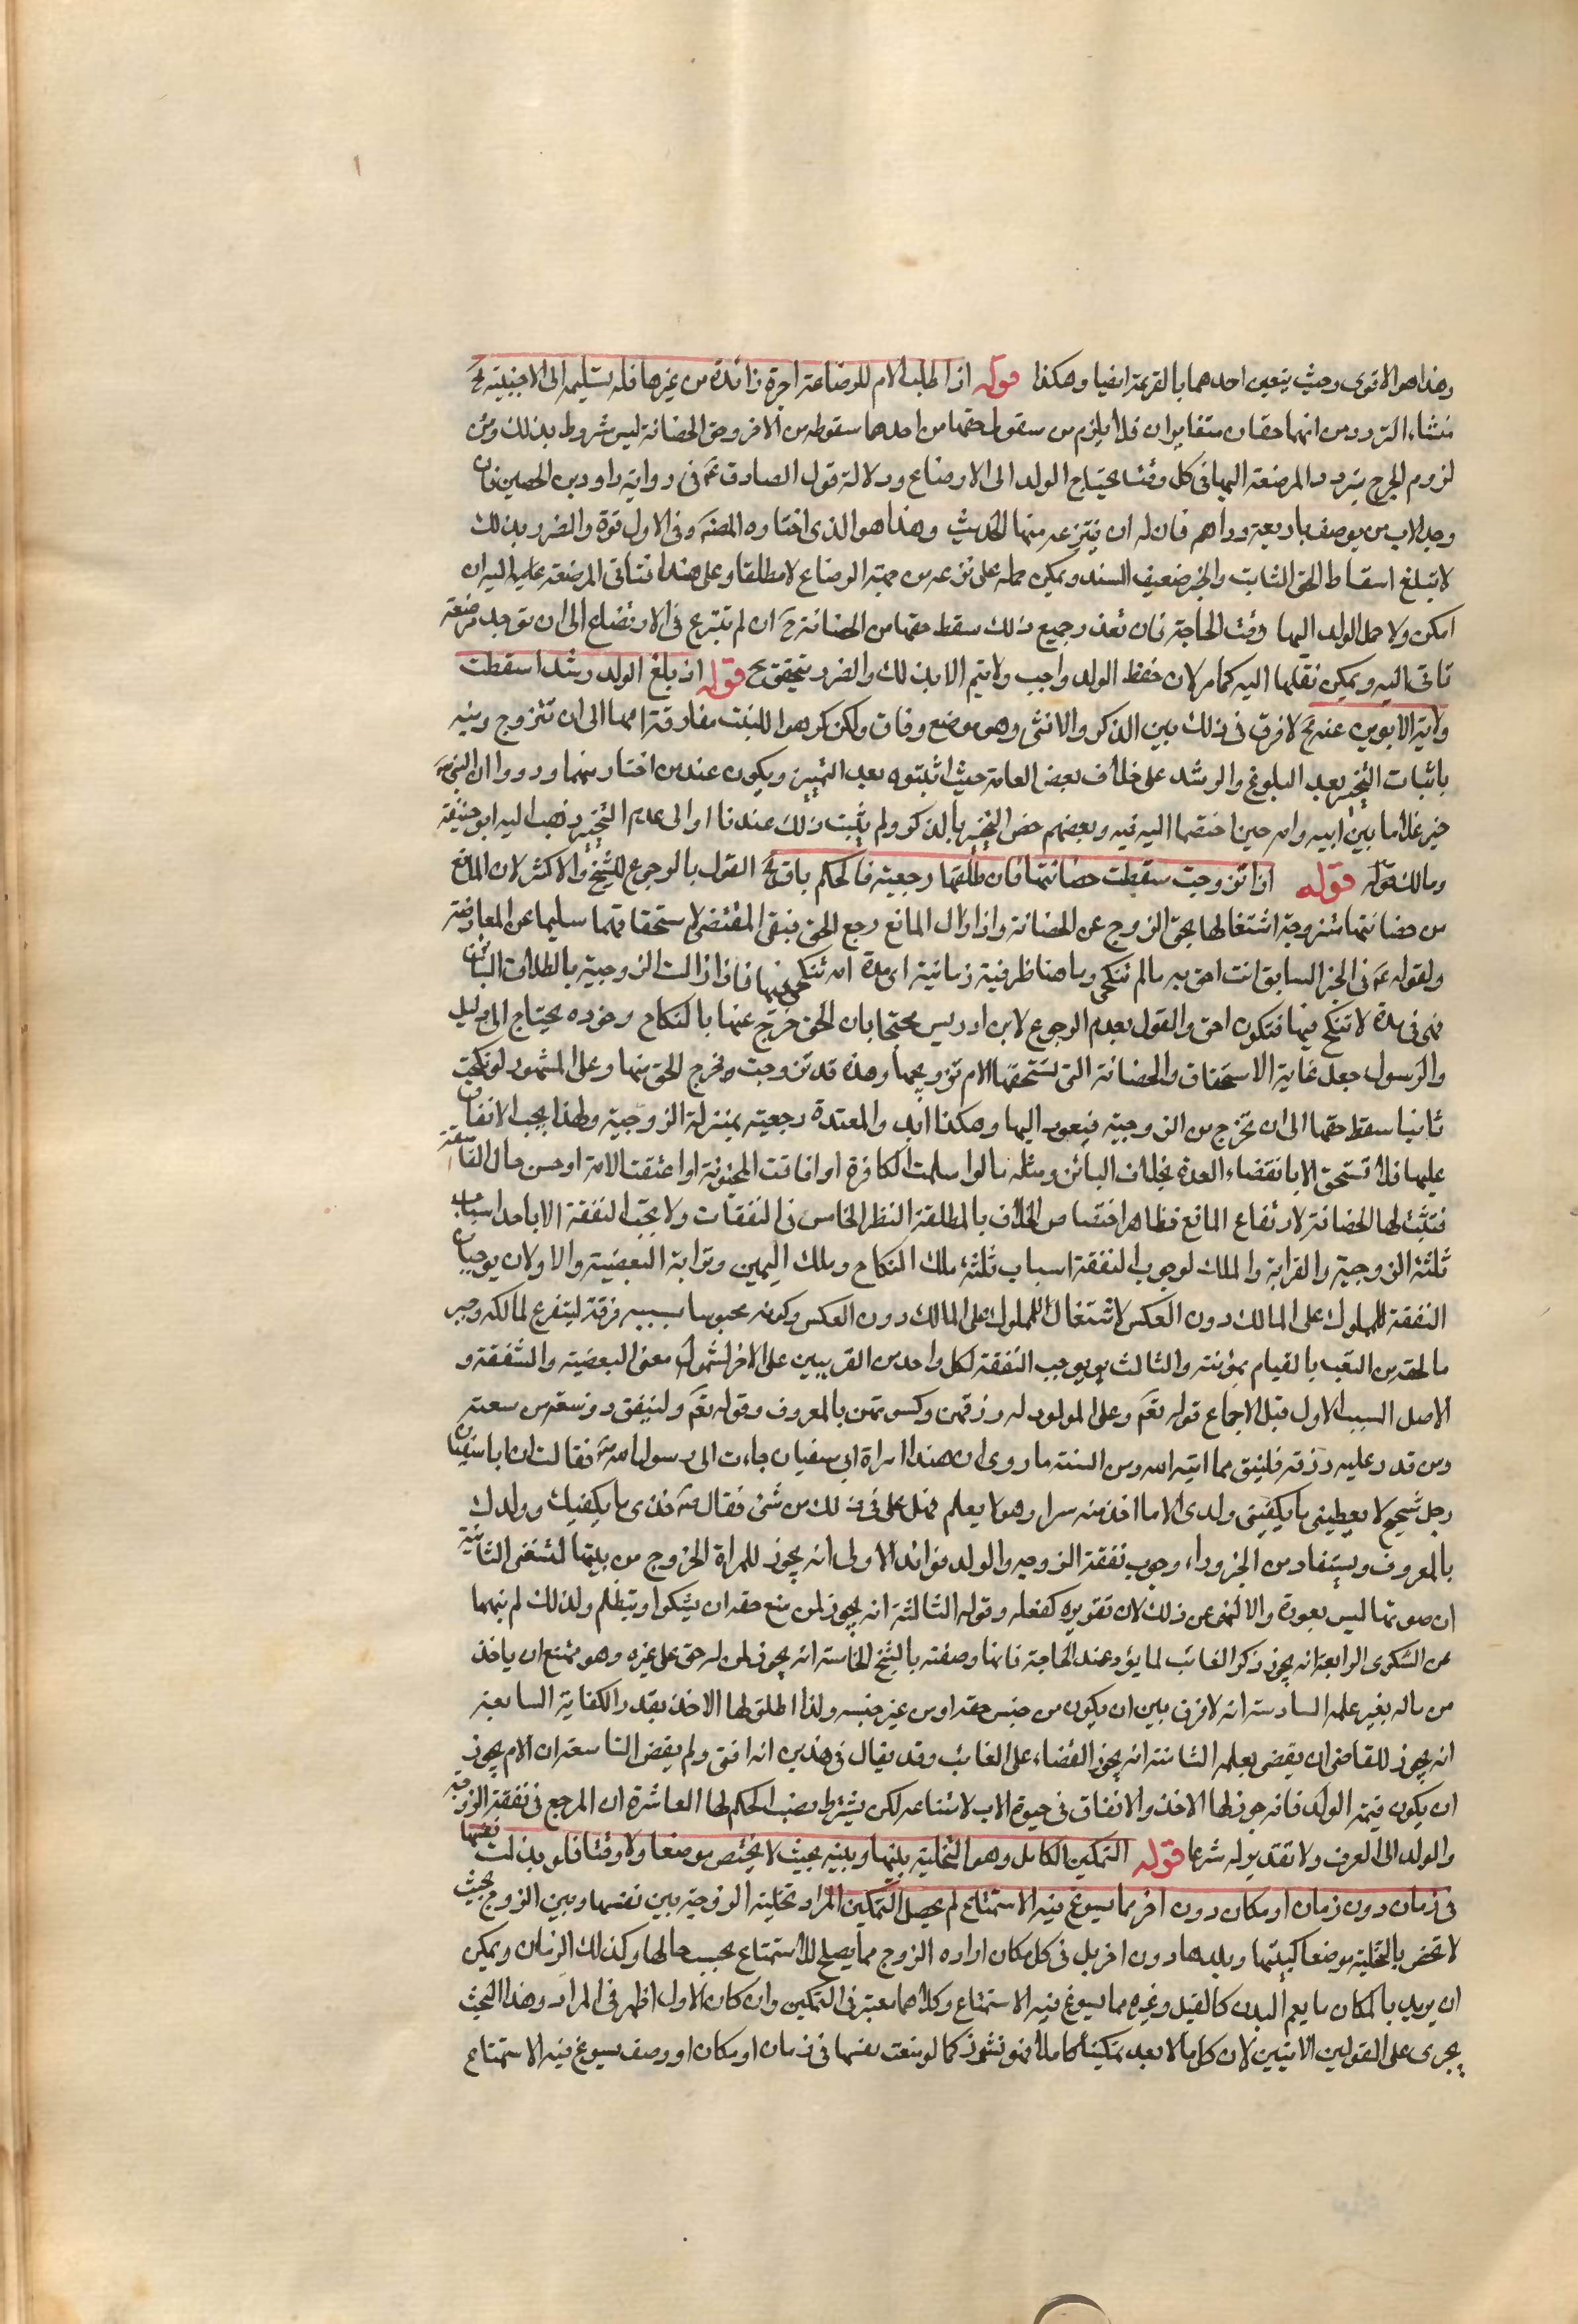 وهذا هو الاقوى وحيث يتعين احدهما بالقرعة ايضا وهكذا قوله اذا طلب الام للرضاعة اجرة زائدة من غيرها فله تسليمه الى الاجنبية الخ
منشاء التردد من انهما حقان متغايران فلا يلزم من سقوط حقها من احدهما سقوطه من الاخر وحق الحضانة ليس مشروط بذلك ومن
لزوم الحرج بتردد المرضعة اليها في كل وقت يحتاج الولد الى الارضاع ودلالة قول الصادق ع في رواية داود بن الحصين فان
وجد الاب من يرضعه باربعة دراهم فان له ان ينتزعه منها الحديث وهذا هو الذي اختاره المصنف وفي الاول قوة والضرر بذلك
لا تبلغ اسقاط الحق الثابت والخبر ضعيف السند ويمكن حمله على نزعه من جهة الرضاع لا مطلقا وعلى هذا فتأتي المرضعة عليه اليه ان
امكن ولا حمل الولد اليها وقت الحاجة فان تعذر جميع ذلك سقط حقها من الحضانة ح ان لم تتبرع في الارتضاع الى ان توجد مرضعة
تاتي اليه ويمكن نقلها اليه كما مر لان حفظ الولد واجب ولا يتم الا بذلك والضرر يتحقق ح قوله اذ بلغ الولد رشدا سقطت
ولاية الابوين عنه الخ لا فرق في ذلك بين الذكر والانثى وهو موضع وفاق ولكن كرهوا للبنت مفارقة امها الى ان تتزوج ونبه
باثبات التخيير بعد البلوغ والرشد على خلاف بعض العامة حيث اثبتوه بعد التمييز ويكون عند من اختار منهما ورووا ان النبي ص
خير غلاما بين ابيه وامه حين اختصما اليه فيه وبعضهم خص التخيير بالذكر ولم يثبت ذلك عندنا والى عدم التخيير ذهب اليه ابو حنيفة
ومالك قوله اذا تزوجت سقطت حضانتها فان طلقها رجعية فالحكم باق الخ القول بالرجوع للشيخ والاكثر لان المانع
من حضانتها متزوجة اشتغالها بحق الزوج عن الحضانة واذا زال المانع رجع الحق فيبقى المقتضي لاستحقاقها سليما عن المعارضة
ولقوله ع في الخبر السابق انت احق به مالم تنكحي وما هنا ظرفية زمانية اى مدة لم تنكحي فيها فاذا زالت الزوجية بالطلاق البائن
فهى في مدة لا تنكح فيها فتكون احق والقول بعدم الرجوع لابن ادريس محتجا بان الحق خرج عنها بالنكاح وعوده يحتاج الى دليل
والرسول جعل غاية الاستحقاق والحضانة التى تستحقها الام تزويجها وهذه قد تزوجت فخرج الحق منها وعلى المشهور لو نكحت
ثانيا سقط حقها الى ان تخرج من الزوجية فيعود اليها وهكذا ابدا والمعتدة رجعية بمنزلة الزوجية ولهذا يجب الانفاق
عليها فلا تستحق الا بانقضاء العدة بخلاف البائن ومثله مالو اسلمت الكافرة او افاقت المجنونة او اعتقت الامة او حسن حال الفاسقة
فتثبت لها الحضانة لارتفاع المانع فظاهر اختصاص الخلاف بالمطلقة النظر الخامس في النفقات ولا تجب النفقة الا باحد اسباب
ثلثة الزوجية والقرابة والملك لوجوب النفقة اسباب ثلثة ملك النكاح وملك اليمين وقرابة البعضية والاولان يوجبان
النفقة للمملوك على المالك دون العكس لاشتغال المملوك على المالك دون العكس وكونه محبوسا بسببه فرقة ليتفرغ لمالكه وجبر
مالحقه من التعب بالقيام بمؤنته والثالث يوجب النفقة لكل واحد من القريبين على الاخر لشمول معنى البعضية والشفقة و
الاصل السبب الاول قبل الاجماع قوله تعم وعلى المولود له رزقهن وكسوتهن بالمعروف وقوله تعم ولينفق ذو سعة من سعته
ومن قدر عليه رزقه فلينفق مما اتيه الله ومن السنة ما روى ان هندا امراة ابي سفيان جاءت الى رسول الله ص فقالت ان ابا سفيان
رجل شحيح لا يعطيني ما يكفيني وولدى الا ما اخذ منه سرا وهو لا يعلم فهل على في ذلك من شئ فقال ص خذى ما يكفيك وولدك
بالمعروف ويستفاد من الخبر وراء وجوب نفقة الزوجه والولد فوائد الاولى انه يجوز للمراة الخروج من بيتها لتستفتي الثانية
ان صوتها ليس بعورة والا لنهى عن ذلك لان تقريره كفعله وقوله الثالثة انه يجوز لمن منع حقه ان يشكوا ويتظلم ولذلك لم ينهها
عن الشكوى الرابعة انه يجوز ذكر الغائب لما يؤد عند الحاجة فانها وصفته بالشح الخامسة انه يجوز لمن له حق على غيره وهو ممتنع ان ياخذ
من ماله بغير علمه السادسة انه لا فرق بين ان يكون من جنس حقه او من غير جنسه ولذا اطلق لها الاخذ بقدر الكفاية السابعة
انه يجوز للقاضي ان يقضى بعلمه الثامنة انه يجوز القضاء على الغائب وقد يقال في هذين انه افتى ولم يقض التاسعة ان الام يجوز
ان يكون قيمة الولد فانه جوز لها الاخذ والانفاق في حيوة الاب لامتناعه لكن يشترط نصب الحاكم لها العاشرة ان المرجع في نفقة الزوجة
والولد الى العرف ولا تقدير له شرعا قوله التمكين الكامل وهو التخلية بينها وبينه بحيث لا يختص موضعا ولا وقتا فلو بذلت نفسها
في زمان دون زمان او مكان دون اخر مما يسوغ فيه الاستمتاع لم يحصل التمكين المراد تخلية الزوجة بين نفسها وبين الزوج بحيث
لا تخص بالتخلية موضعا كبيتها وبلدها دون اخر بل في كل مكان اراده الزوج مما يصلح للاستمتاع بحسب حالها وكذلك الزمان ويمكن
ان يريد بالمكان ما يعم البدن كالقبل وغيره مما يسوغ فيه الاستمتاع وكلاهما معتبر في التمكين وان كان الاول اظهر في المراد وهذا البحث
يجرى على القولين الاتيين لان كل ما لا يعد تمكينا كاملا فهو نشوز كما لو منعت نفسها في زمان او مكان او وصف يسوغ فيه الاستمتاع